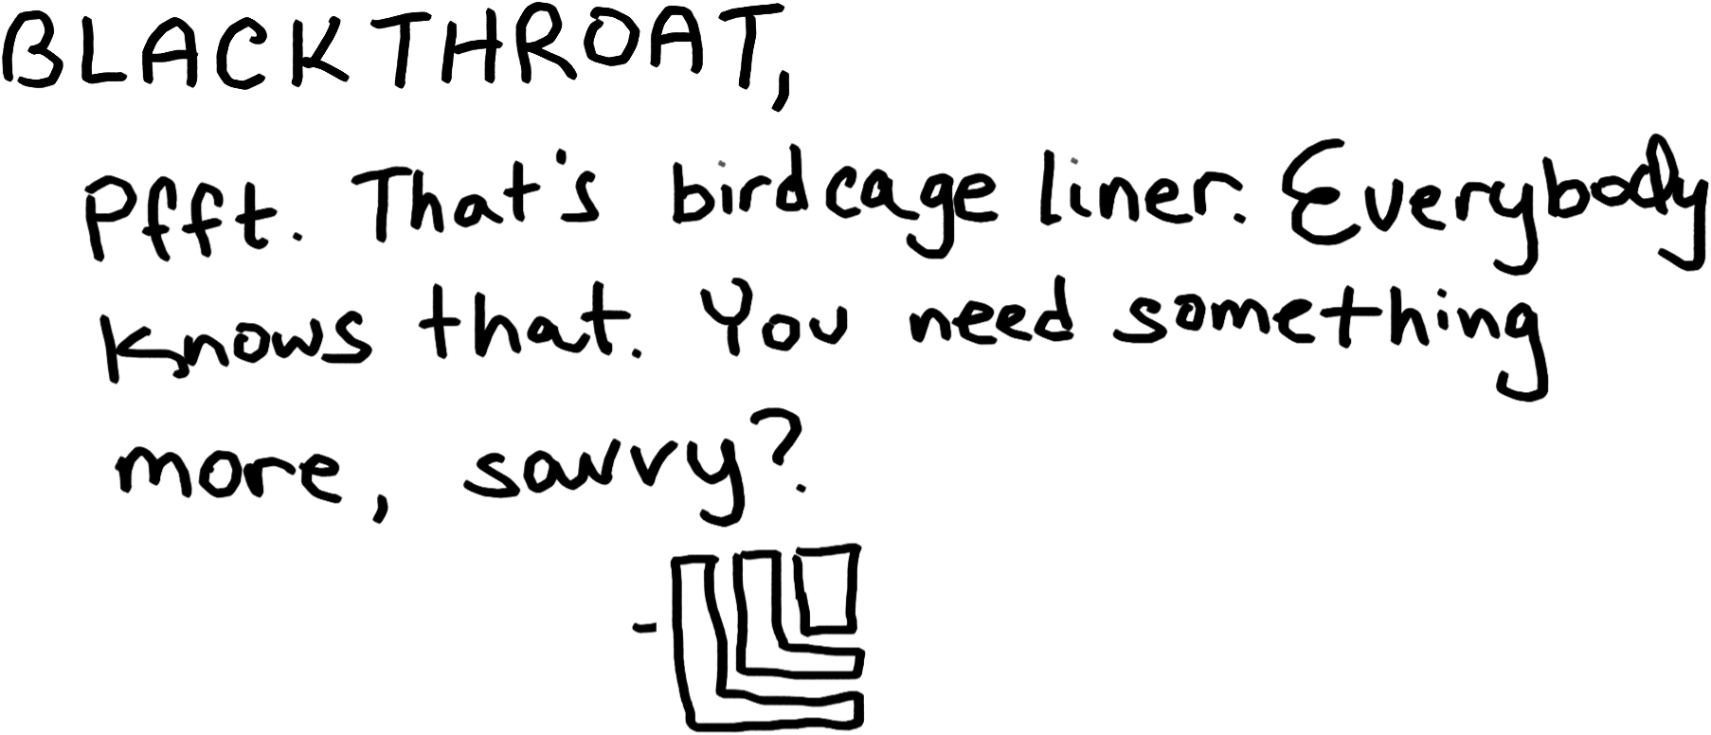 BLACKTHROAT,
Pfft. That's birdcage liner. Everybody
knows that. You need something
more, savvy?
-